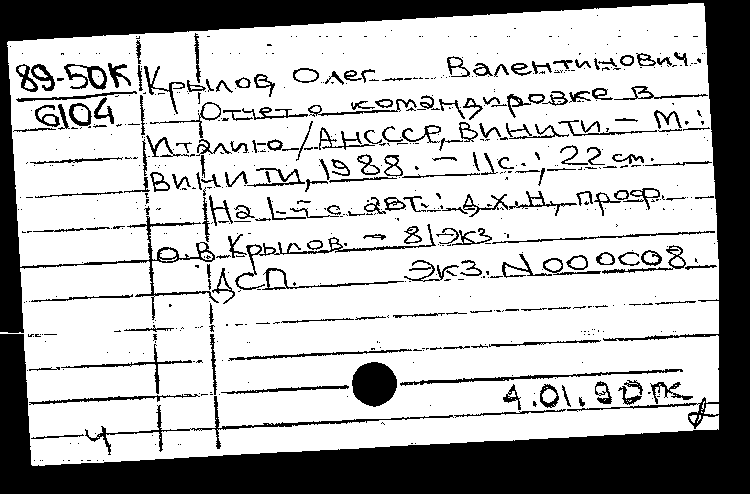 89-50К
6104
Крылов, Олег Валентинович.
Отчет о командировке в
Италию / АНСССР, ВИНИТИ. - М.:
ВИНИТИ, 1988. - 11с.; 22 см.
На 1-й с. авт.: д.х.н., проф.
О.В. Крылов. - 81экз.
ДСП. Экз. N000008.
4.01.90
ч